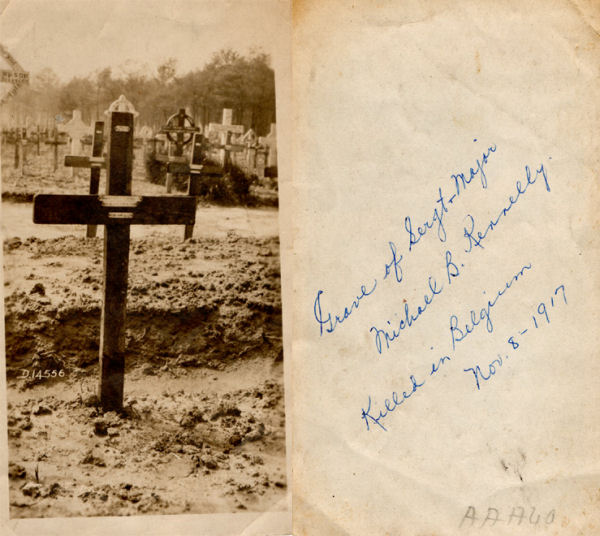 D.14556
Grave of Sergt-Major
Michael B. Kennelly.
Killed in Belgium
Nov. 8-1917
AAA40